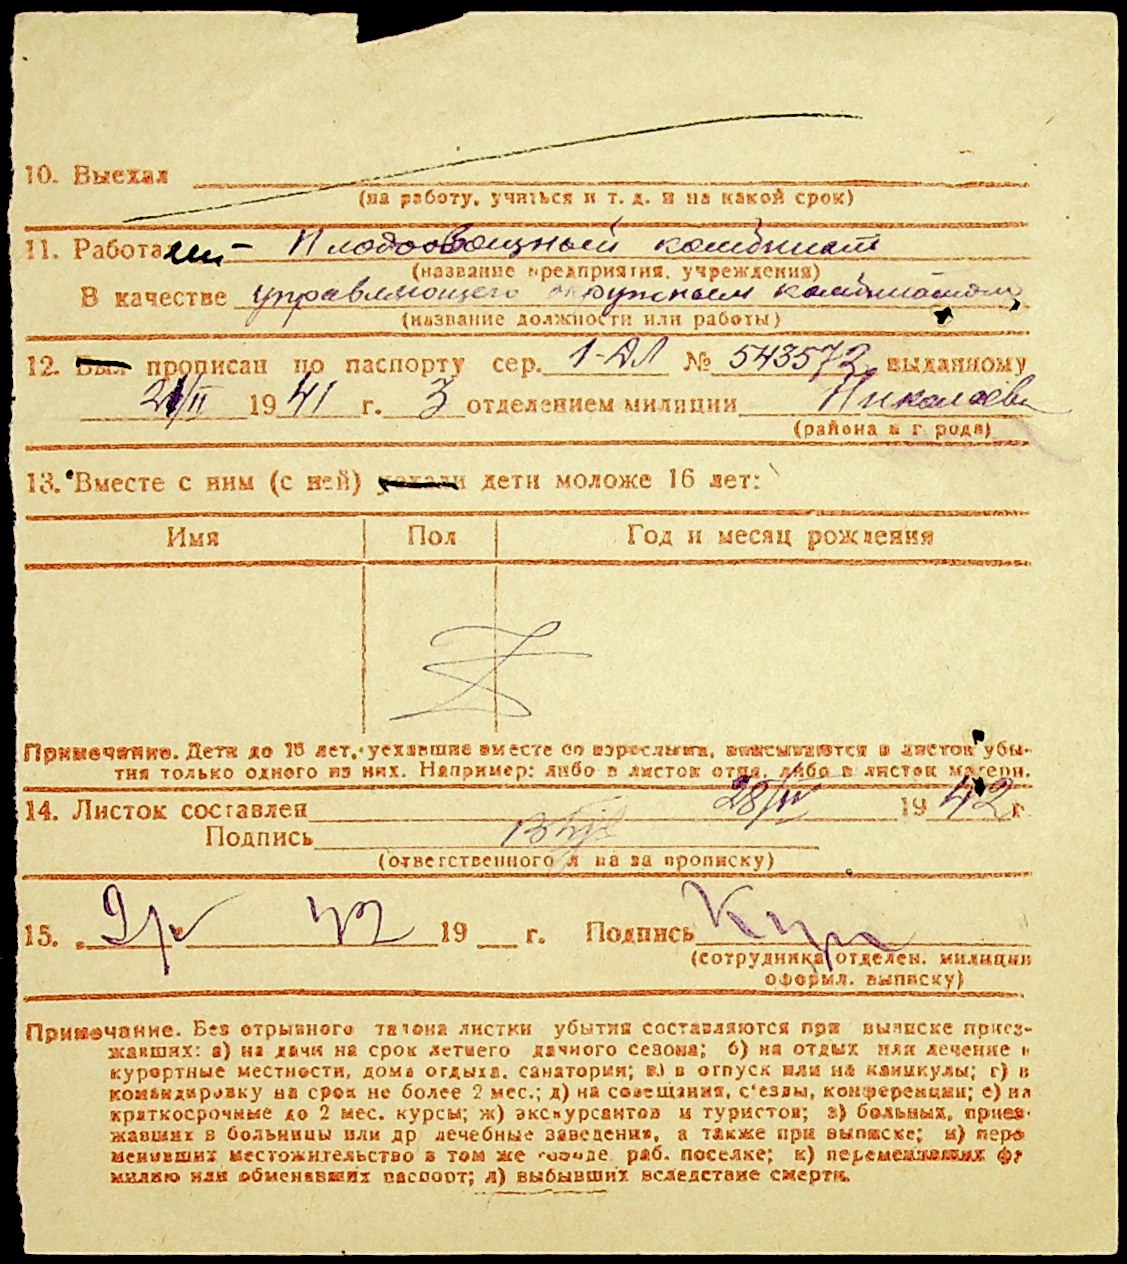 10. Выехал
(на работу, учиться и т. д. и на какой срок)
11. Работа Плодоовощный комбинат
(название предприятия, учреждения)
В качестве управляющего комбинатом
(название должности или работы)
12. Был прописан по паспорту сер. 1-ДЛ № 543572 выданному
21/II 1941 г. 3 отделением милиции Николаев
(района и города)
13. Вместе с ним (с ней) уехали дети моложе 16 лет:
Имя Пол Год и месяц рождения
Примечание. Дети до 16 лет, уехавшие вместе со взрослыми, вписываются в листок убы-
тия только одного из них. Например: либо в листок отца, либо в листок матери.
14. Листок составлен 28/IV 1942 г
Подпись
(ответственного л на за прописку)
15. 42 19 г. Подпись
(сотрудника отделен. милиции
оформл. выписку)
Примечание. Без отрывного талона листки убытия составляются при выписке приез-
жавших: а) на дачи на срок летнего дачного сезона; б) на отдых или лечение в
курортные местности, дома отдыха, санатории; в) в отпуск или на каникулы; г) в
командировку на срок не более 2 мес.; д) на совещания, с'езды, конференции; е) на
краткосрочные до 2 мес. курсы; ж) экскурсантов и туристов; з) больных, приез-
жавших в больницы или др лечебные заведения, а также при выписке; и) пере
менивших местожительство в том же городе, раб. поселке; к) переменивших фа
милию или обменявших паспорт; л) выбывших вследствие смерти.